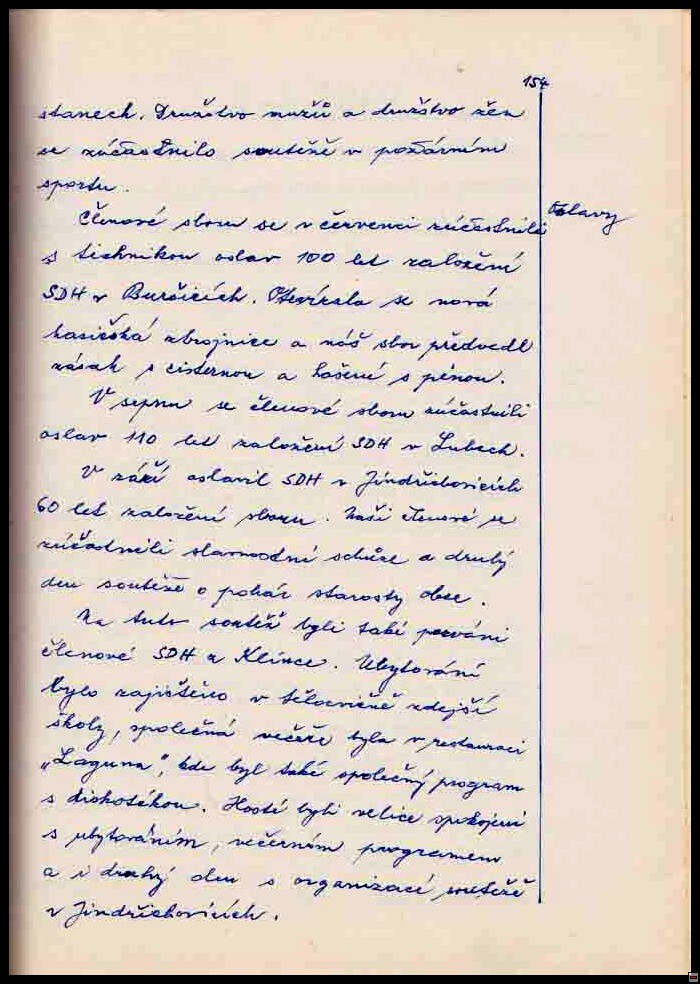 154
stanech. Družstvo mužů a družstvo žen
se zúčastnilo soutěže v požárním
sportu.
Oslavy
Členové sboru se v červenci zúčastnili
s technikou oslav 100 let založení
SDH v Burčicích. Otevírala se nová
hasičská zbrojnice a náš sbor předvedl
zásah s cisternou a hašení s pěnou.
V srpnu se členové sboru zúčastnili
oslav 110 let založení SDH v Lubech.
V září oslavil SDH v Jindřichovicích
60 let založení sboru. Naši členové se
zúčastnili slavnostní schůze a druhý
den soutěže o pohár starosty obce.
Na tuto soutěž byli také pozváni
členové SDH z Klince. Ubytování
bylo zajištěno v tělocvičně zdejší
školy, společná večeře byla v restauraci
„Laguna", kde byl také společný program
s diskotékou. Hosté byli velice spokojeni
s ubytováním, večerním programem
a i druhý den s organizací soutěže
v Jindřichovicích.